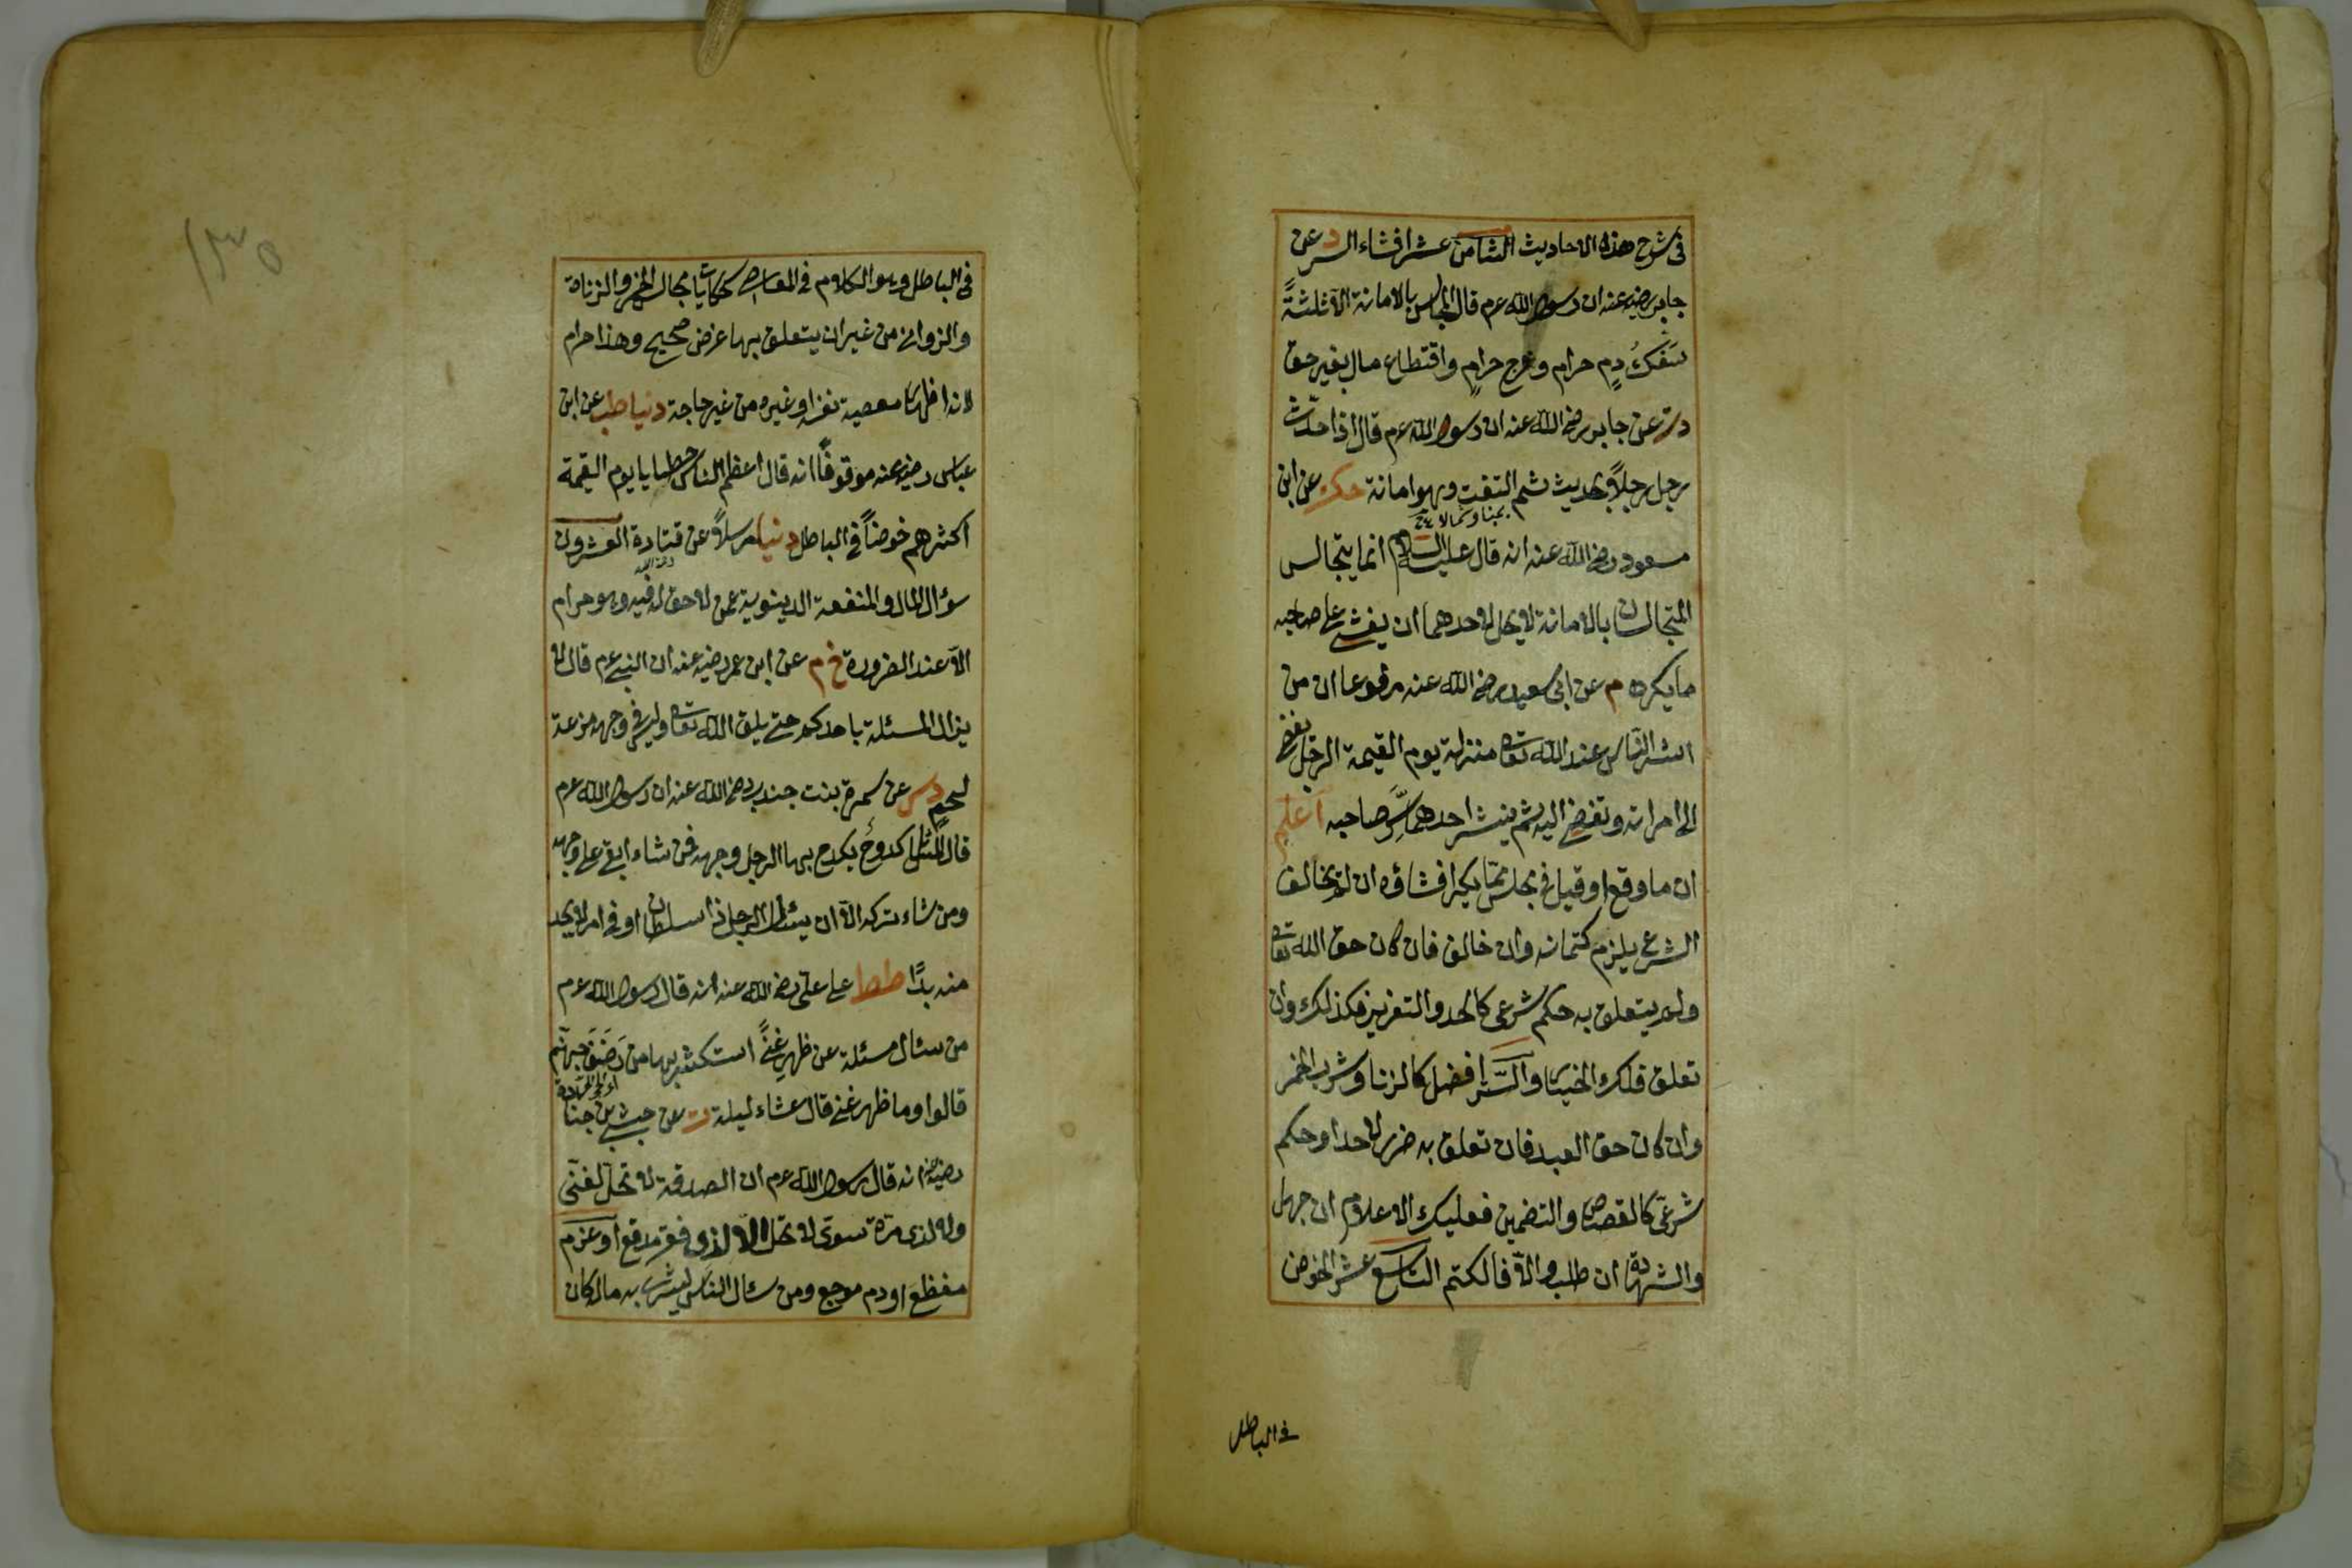 في شرح هذه الاحاديث الثامن عشر افشاء السر د عن
جابر رضي عنه ان رسول الله عم قال المجالس بالامانة الا ثلثةً
سَفكُ دمٍ حرام وفرج حرام واقتطاع مال بغير حق
دت عن جابر رضي الله عنه ان رسول الله عم قال اذا حدّث
رجل رجلاً بحديث ثم التفت وهو امانة حك عن ابن
يمينا وشمالا
مسعود رضي الله عنه انه قال عليه السلام انما يتجالس
المتجالسان بالامانة لا يحل لاحدهما ان يفشي على صاحبه
ما يكره م عن ابي سعيد رضي الله عنه مرفوعا ان من
اشر الناس عند الله تعا منزلة يوم القيمة الرجل يفضي
الى امراته وتفضي اليه ثم ينشر احدهما سِرَّ صاحبه اعلم
ان ما وقع او قيل في مجلس ممّا يكره افشاؤه ان لم يخالف
الشرع يلزم كتمانه وان خالف فان كان حق الله تعا
ولم يتعلق به حكم شرعي كالحد والتعزير فكذلك وان
تعلق فلك الخيار والسّتر افضل كالزنا وشرب الخمر
وان كان حق العبد فان تعلق به ضرر لاحد او حكم
شرعي كالقصاص والتضمين فعليك الاعلام ان جهل
والشهادة ان طلب والا فالكتم التاسع عشر الخوض
في الباطل
١٣٥
في الباطل وهو الكلام في المعاصي كحكايات مجالس الخمر والزناة
والزواني من غير ان يتعلق بها غرض صحيح وهذا حرام
لانه اظهار معصية نفسه او غيره من غير حاجة دنيا طب عن ابن
عباس رضي عنه موقوفاً انه قال اعظم الناس خطايا يوم القيمة
اكثرهم خوضاً في الباطل دنيا مرسلاً عن قتادة العشرون
سؤال المال والمنفعة الدينوية عمن لا حق له فيه وهو حرام
الا عند الضرورة خ م عن ابن عمر رضي عنه ان النبي عم قال لا
يزال المسئلة باحدكم حتى يلقى الله تعا وليس في وجهه مزعة
لحم دس عن سمرة بنت جندب رضي الله عنه ان رسول الله عم
قال المسائل كدوحٌ يكدح بها الرجل وجهه فمن شاء ابقى على وجهه
ومن شاء تركه الا ان يسئل الرجل ذا سلطان او في امر لا يجد
منه بدًا طط على علي رضي الله عنه انه قال رسول الله عم
من سئال مسئلة عن ظهرِ غنىً استكثر بها من رَضَف جهنّم
قالوا وما ظهر غنى قال عشاء ليلة ت عن حبشي بن جنادة
رضي عنه انه قال رسول الله عم ان الصدقة لا تحلّ لغنّي
ولا لذى مرّة سوىّ لا تحلّ الا لذي فقر مدقع او غرم
مفظع او دم موجع ومن سئال الناس ليثرى به ماله كان